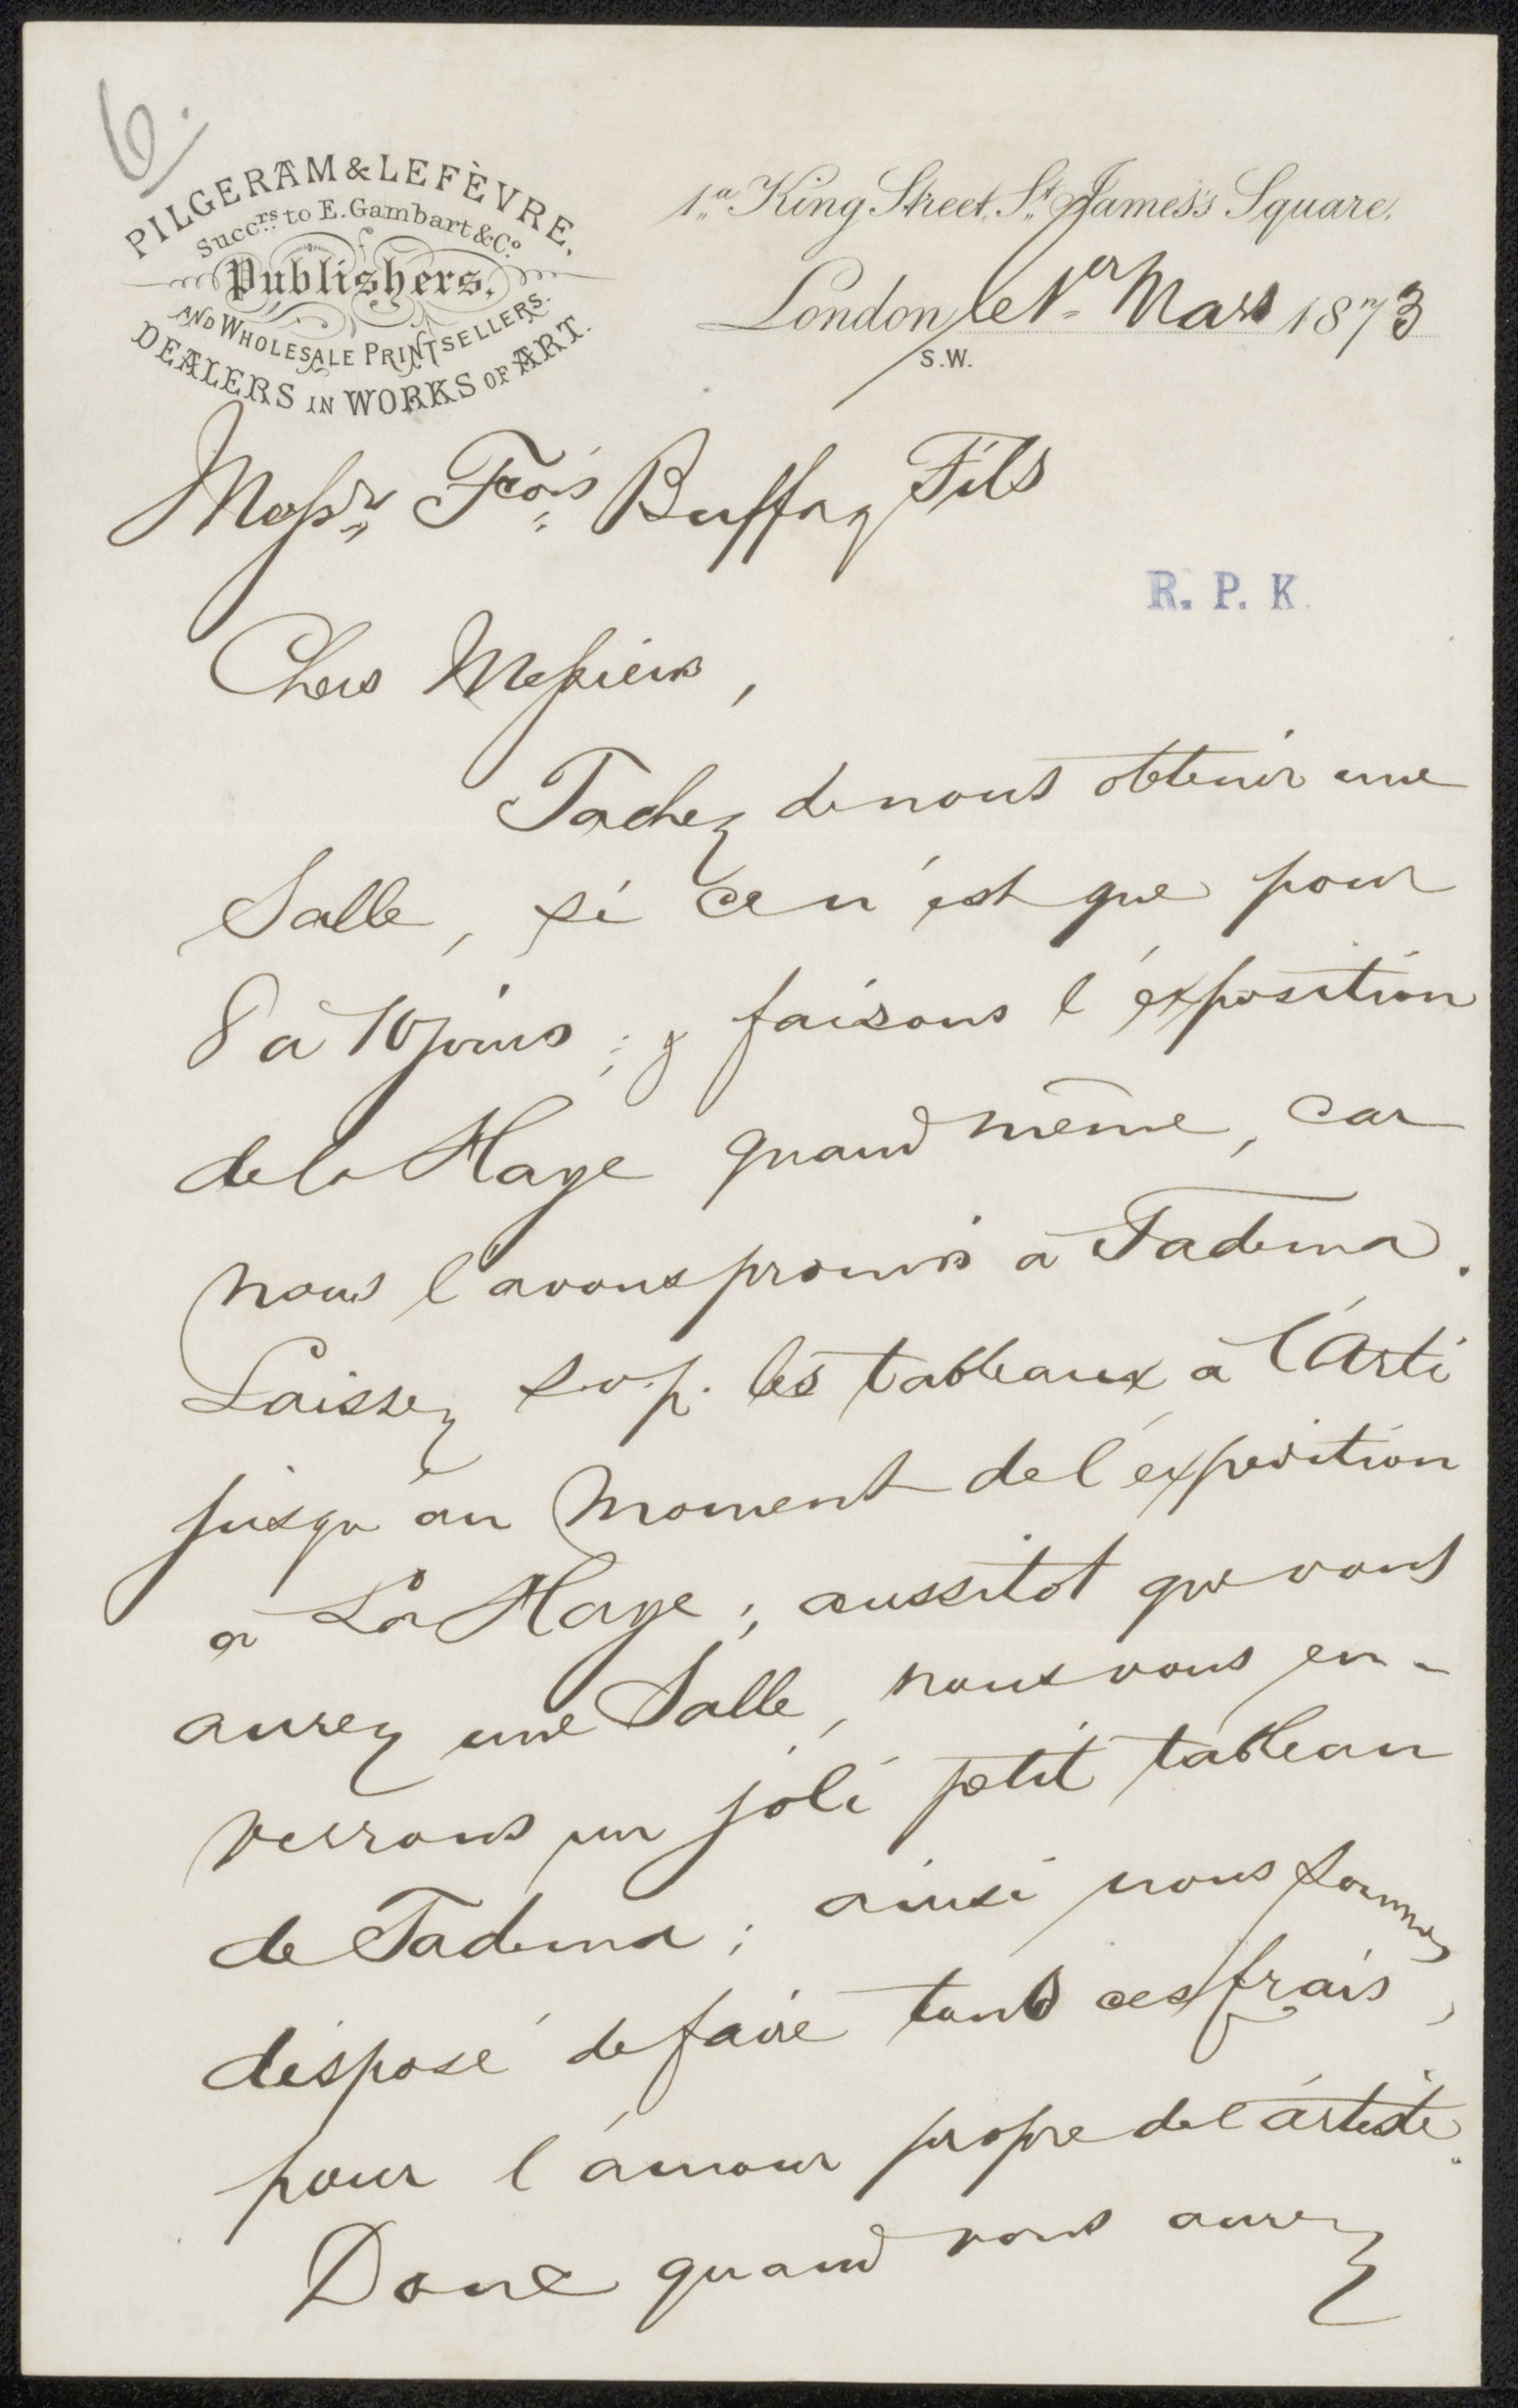 6.
PILGERAM & LEFÈVRE,
Succrs to E. Gambart & Co.
Publishers,
AND WHOLESALE PRINTSELLERS.
DEALERS IN WORKS OF ART.
1a King Street, St James's Square,
London le 1er Mars 1873
S.W.
Messrs Frois Buffa y Fils
R. P. K.
Chers Messieurs,
Tachez de nous obtenir une
Salle, si ce n'est que pour
8 à 10 jours; y faisons l'éxposition
de la Haye quand même, car
nous l'avons promis à Tadema.
Laissez s.v.p. les tableaux à l'Arti
jusqu'au moment de l'éxposition
à La Haye; aussitot que vous
aurez une Salle, nous vous en-
verrons un joli petit tableau
de Tadema; ainsi nous sommes
disposé de faire tous ces frais,
pour l'amour propre de l'artiste.
Donc quand vous aurez